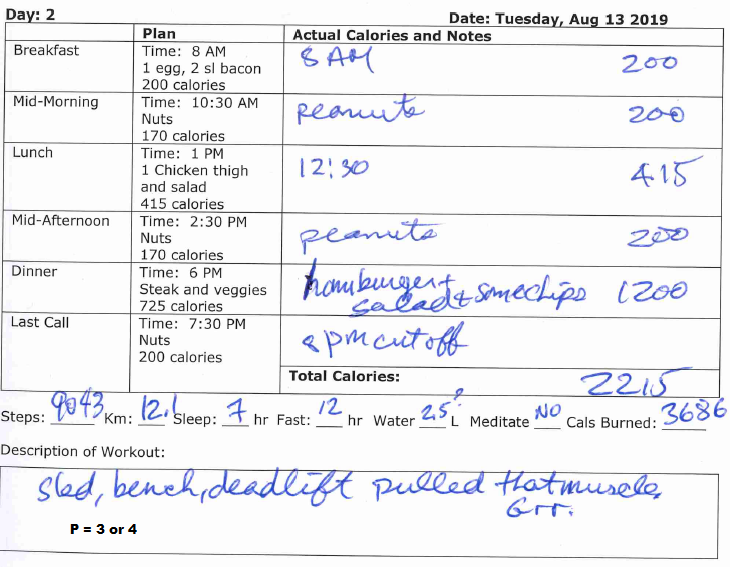 Day: 2 Date: Tuesday, Aug 13 2019
Plan Actual Calories and Notes
Breakfast Time: 8 AM 8 AM 200
1 egg, 2 sl bacon
200 calories
Mid-Morning Time: 10:30 AM peanuts 200
Nuts
170 calories
Lunch Time: 1 PM 12:30 415
1 Chicken thigh
and salad
415 calories
Mid-Afternoon Time: 2:30 PM peanuts 200
Nuts
170 calories
Dinner Time: 6 PM hamburger + 1200
Steak and veggies salad & some chips
725 calories
Last Call Time: 7:30 PM 8 pm cut off
Nuts
200 calories
Total Calories: 2215
Steps: 9043 Km: 12.1 Sleep: 7 hr Fast: 12 hr Water 2.5? L Meditate NO Cals Burned: 3686
Description of Workout:
sled, bench, deadlift pulled that muscle.
Grr.
P = 3 or 4